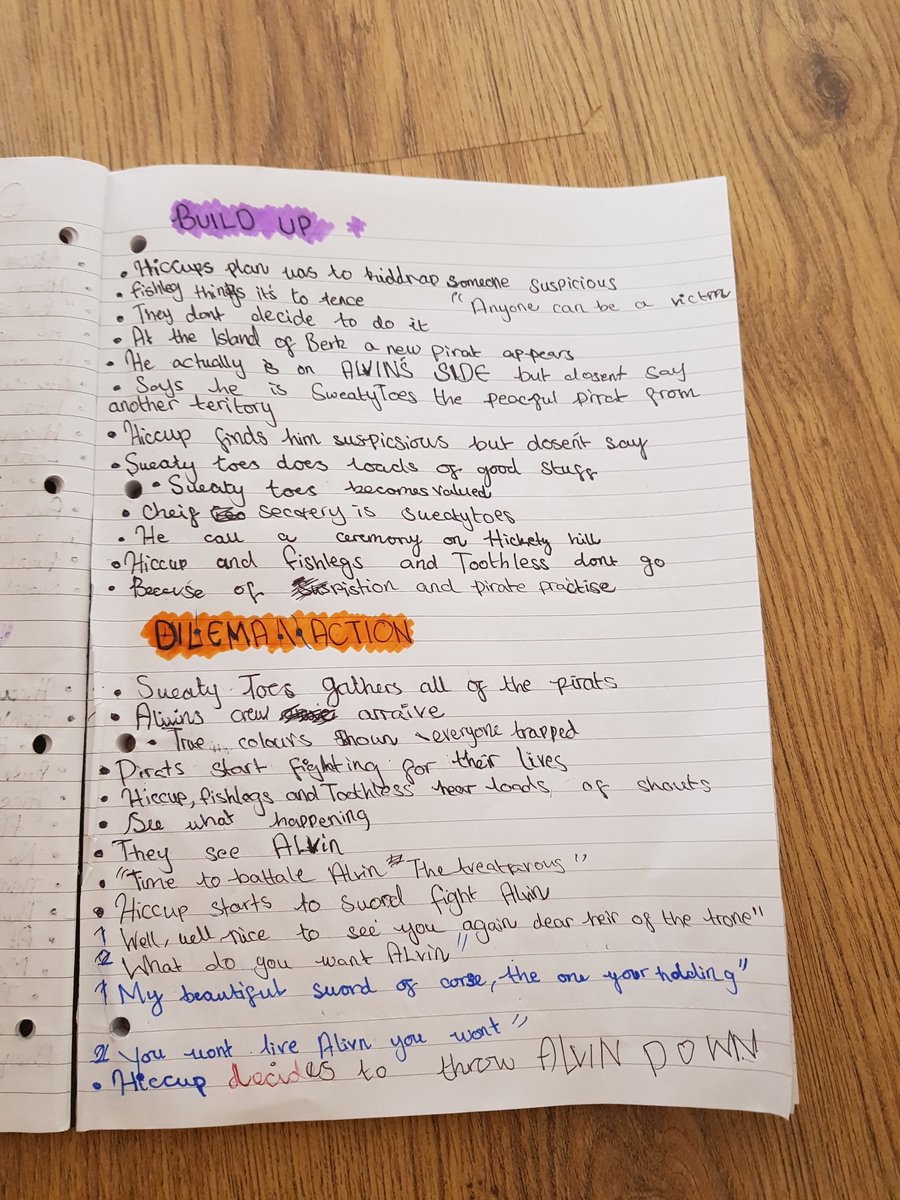 BUILD UP *
• Hiccups plan was to kiddnap someone suspicious
• fishleg things it's to tence "Anyone can be a victim
• They dont decide to do it
• At the Island of Berk a new pirat appears
• He actually is on ALVIN'S SIDE but dosent say
• Says he is SweatyToes the peacful pirat from
another teritory
• Hiccup finds him suspicsious but dosen't say
• Sweaty toes does loads of good stuff
• Sweaty toes becomes valued
• Cheif secretery is sweatytoes
• He call a ceremony on Hickety hill
• Hiccup and fishlegs and Toothless dont go
• Because of and pirate practise
DILEMA N ACTION
• Sweaty Toes gathers all of the pirats
• Alwins crew arraive
• True colours shown everyone trapped
• Pirats start fighting for their lives
• Hiccup, fishlegs and Toothless hear loads of shouts
• See what happening
• They see ALvin
• "Time to battale Alvin "The treatparous"
• Hiccup starts to sword fight Alvin
1 Well, well nice to see you again dear heir of the trone"
2 What do you want ALvin"
1 My beautiful sword of corse, the one your holding"
2 You wont live Alivn you wont"
• Hiccup decides to throw ALVIN DOWN